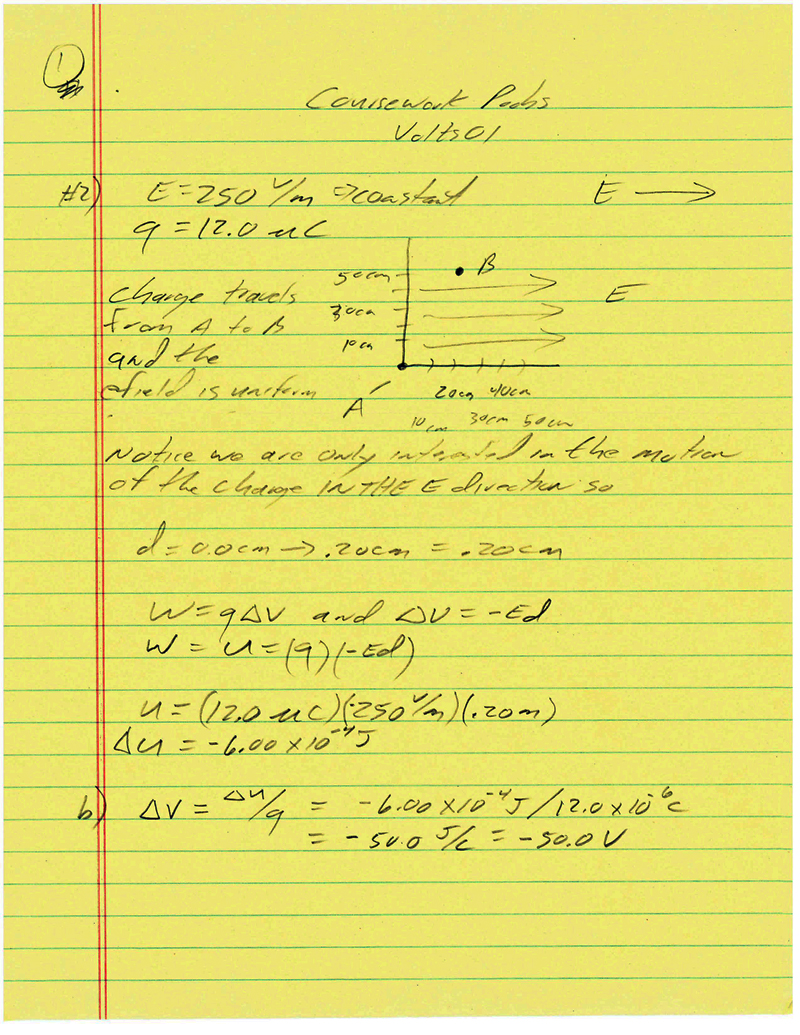 1
Coursework Probs
Volts01
#2) E = 250 V/m ⇒ constant E →
q = 12.0 uC
50cm B
charge travels E
from A to B 30cm
and the 10cm
efield is uniform A 20cm 40cm
10cm 30cm 50cm
Notice we are only interested in the motion
of the charge IN THE E direction so
d = 0.0cm → .20cm = .20cm
W = qΔV and ΔV = -Ed
W = U = (q)(-Ed)
U = (12.0 uC)(-250 V/m)(.20m)
ΔU = -6.00 x 10⁻⁴ J
b) ΔV = ΔU/q = -6.00 x 10⁻⁴ J / 12.0 x 10⁻⁶ C
= -50.0 J/C = -50.0 V